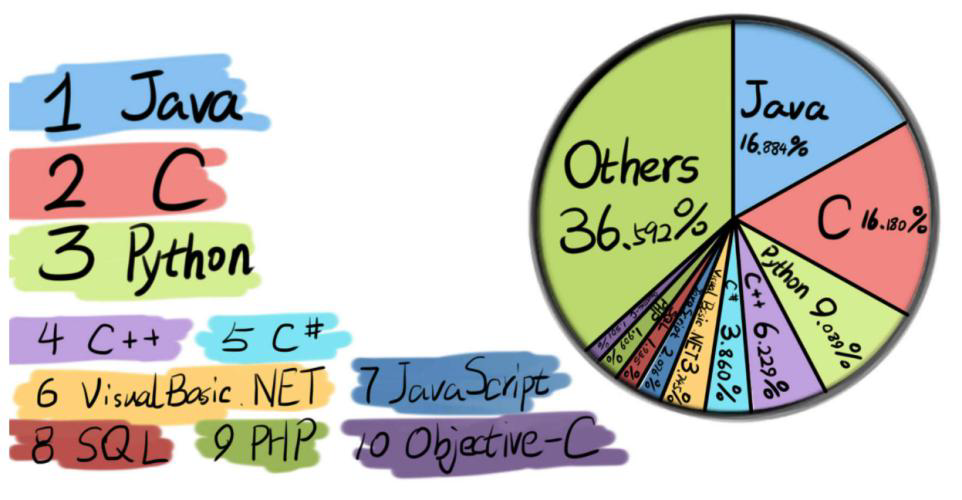 1 Java
2 C
3 Python
4 C++
5 C#
6 Visual Basic .NET
7 JavaScript
8 SQL
9 PHP
10 Objective-C
Others
36.592%
Java
16.884%
C 16.180%
Python 9.089%
C++ 6.229%
C# 3.860%
Visual Basic .NET
JavaScript 2.076%
SQL 1.935%
PHP 1.909%